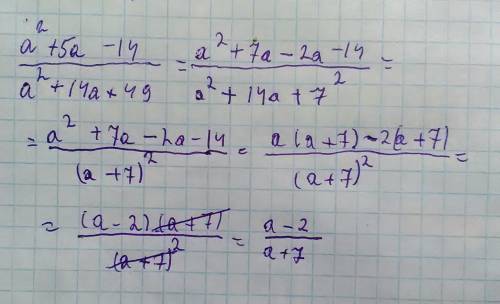 (a² + 5a - 14)/(a² + 14a + 49) = (a² + 7a - 2a - 14)/(a² + 14a + 7²) =
= (a² + 7a - 2a - 14)/(a + 7)² = (a(a + 7) - 2(a + 7))/(a + 7)² =
= ((a - 2)(a + 7))/(a + 7)² = (a - 2)/(a + 7)